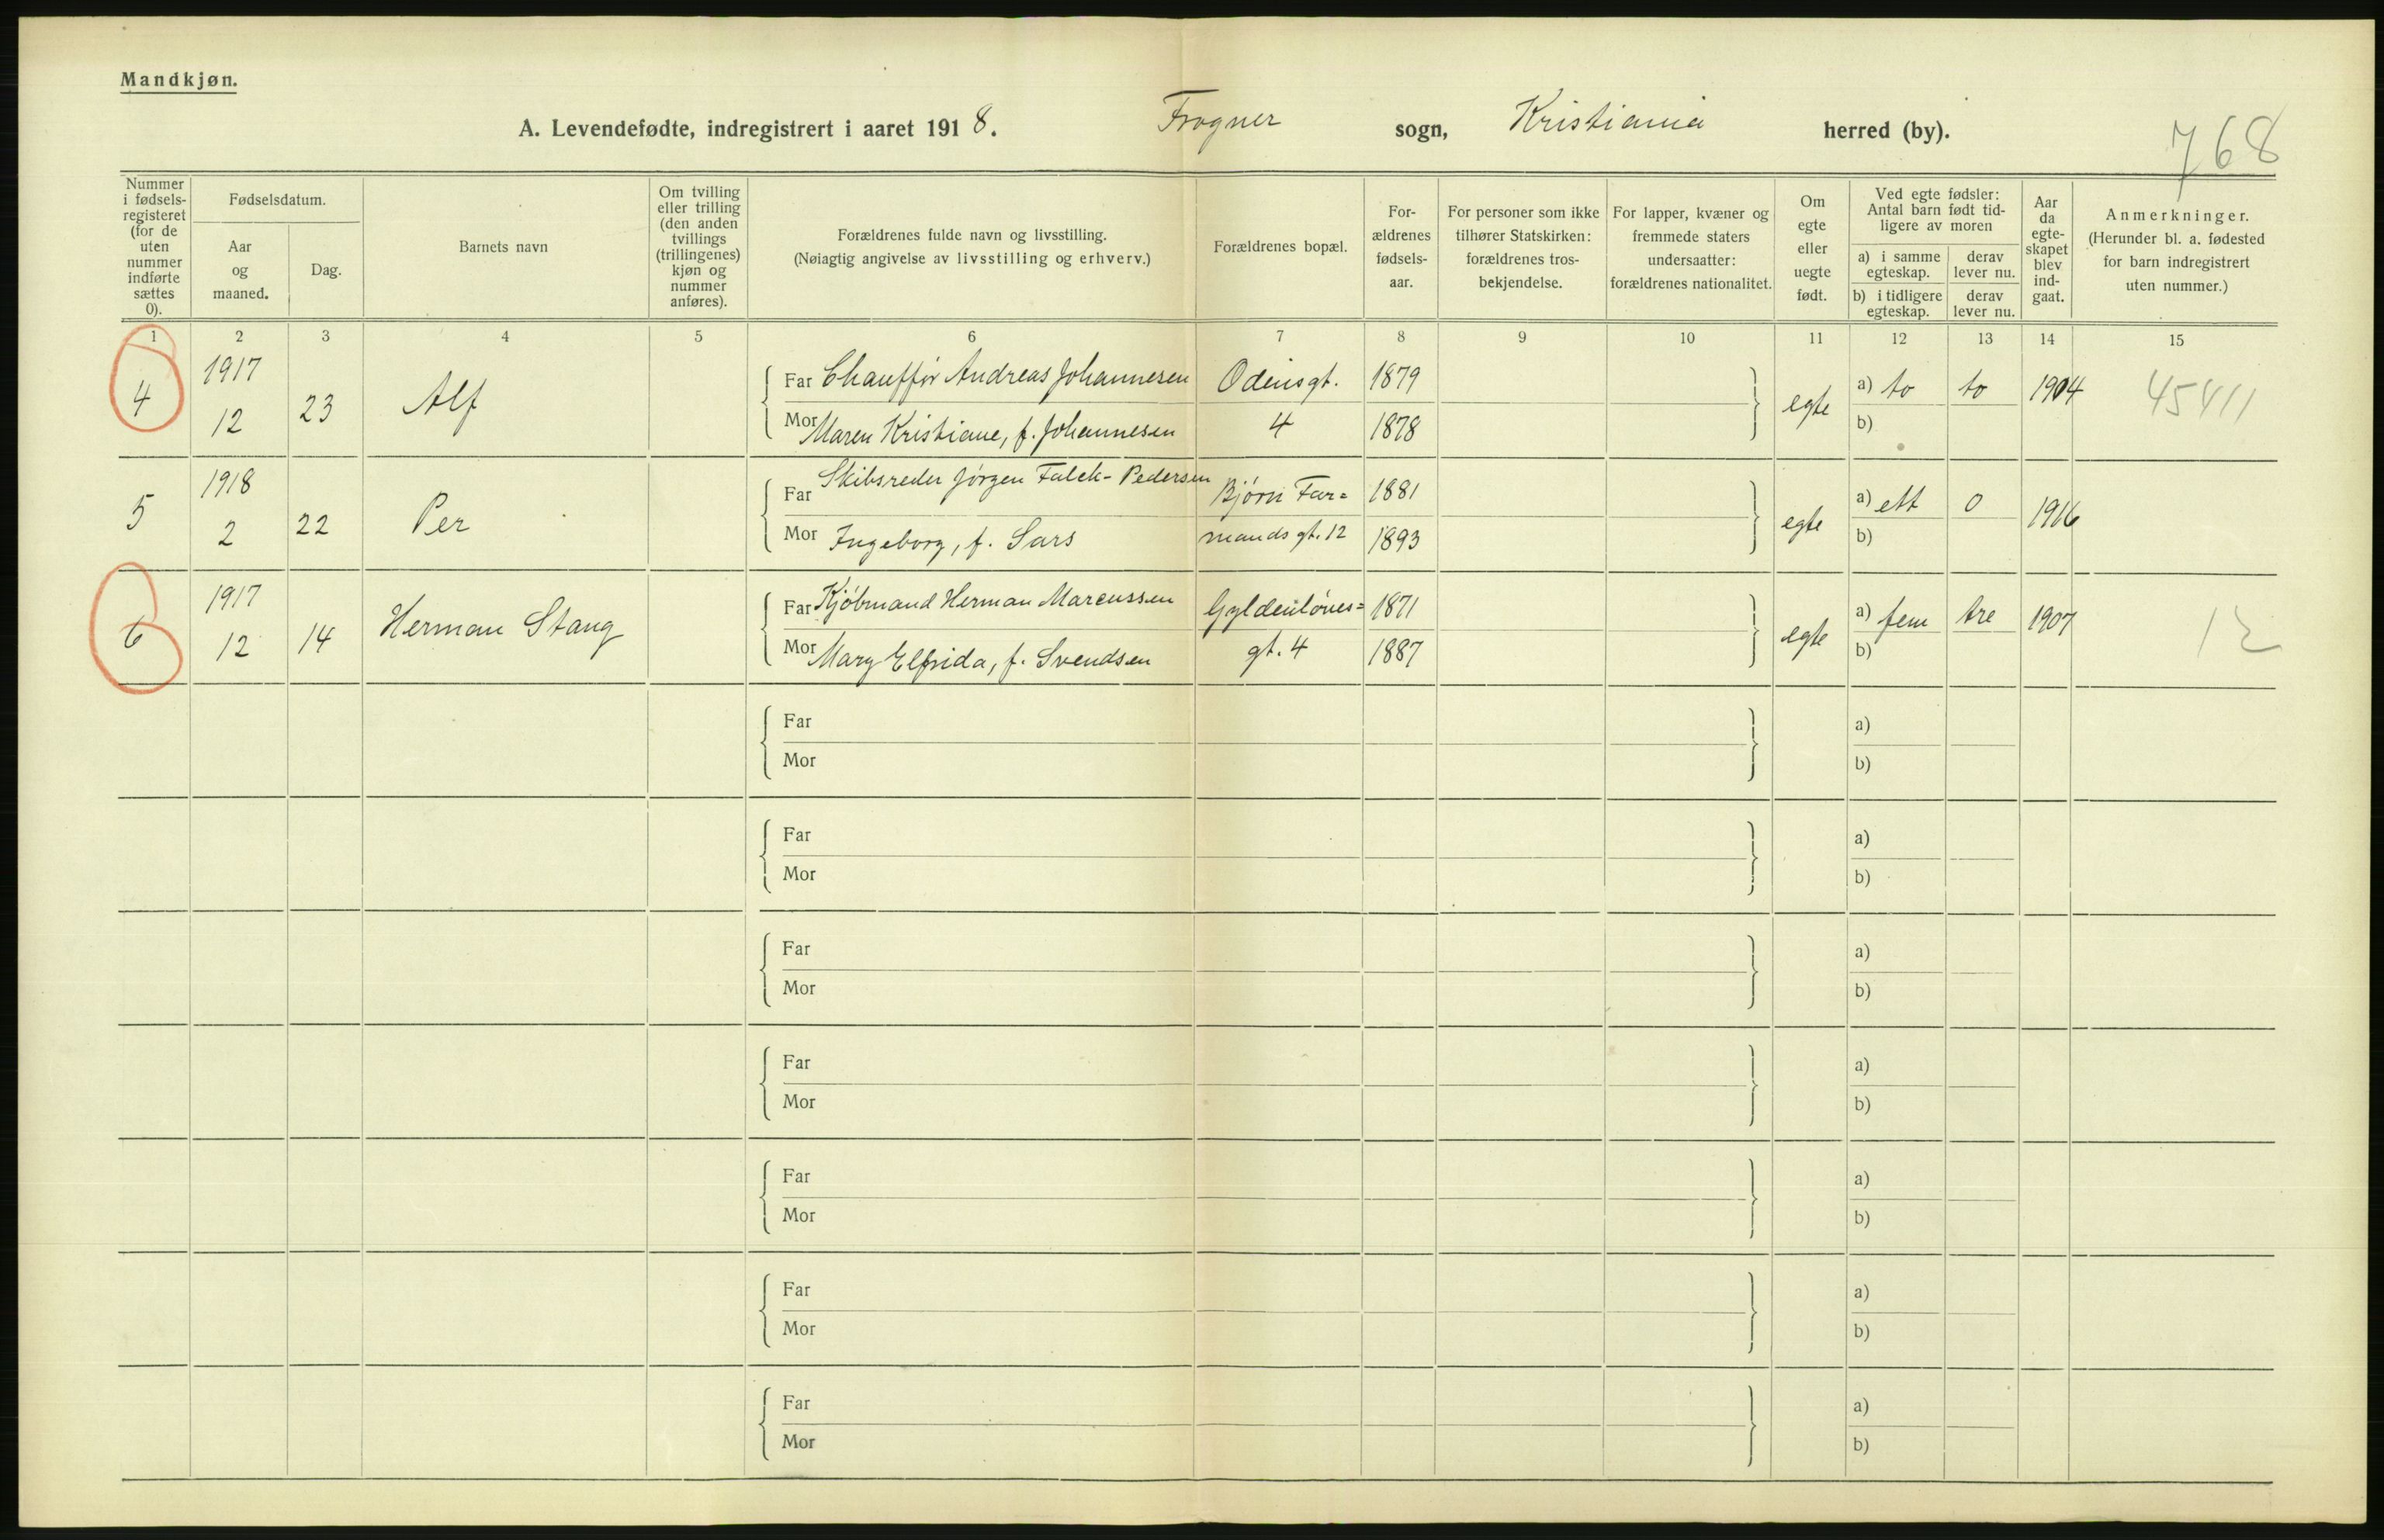 Mandkjøn.
A. Levendefødte, indregistrert i aaret 1918. Frogner sogn, Kristiania herred (by).
768
Nummer i fødsels-registeret (for de uten nummer indførte sættes 0).
Fødselsdatum.
Aar og maaned.
Dag.
Barnets navn
Om tvilling eller trilling (den anden tvillings (trillingenes) kjøn og nummer anføres).
Forældrenes fulde navn og livsstilling.
(Nøiagtig angivelse av livsstilling og erhverv.)
Forældrenes bopæl.
For-ældrenes fødsels-aar.
For personer som ikke tilhører Statskirken: forældrenes tros-bekjendelse.
For lapper, kvæner og fremmede staters undersaatter: forældrenes nationalitet.
Om egte eller uegte født.
Ved egte fødsler: Antal barn født tid-ligere av moren
a) i samme egteskap.
derav lever nu.
b) i tidligere egteskap.
derav lever nu.
Aar da egte-skapet blev ind-gaat.
Anmerkninger.
(Herunder bl. a. fødested for barn indregistrert uten nummer.)
1 2 3 4 5 6 7 8 9 10 11 12 13 14 15
4 1917 12 23 Alf
Far Chauffør Andreas Johannesen Odinsgt. 1879
Mor Maren Kristiane, f. Johannesen 4 1878
egte a) to to 1904 45411
b)
5 1918 2 22 Per
Far Skibsreder Jørgen Falck-Pedersen Bjørn Far= 1881
Mor Ingeborg, f. Sars mands gt. 12 1893
egte a) ett 0 1916
b)
6 1917 12 14 Herman Stang
Far Kjøbmand Herman Marcussen Gyldenløves= 1871
Mor Mary Elfrida, f. Svendsen gt. 4 1887
egte a) fem tre 1907 12
b)
Far a)
Mor b)
Far a)
Mor b)
Far a)
Mor b)
Far a)
Mor b)
Far a)
Mor b)
Far a)
Mor b)
Far a)
Mor b)